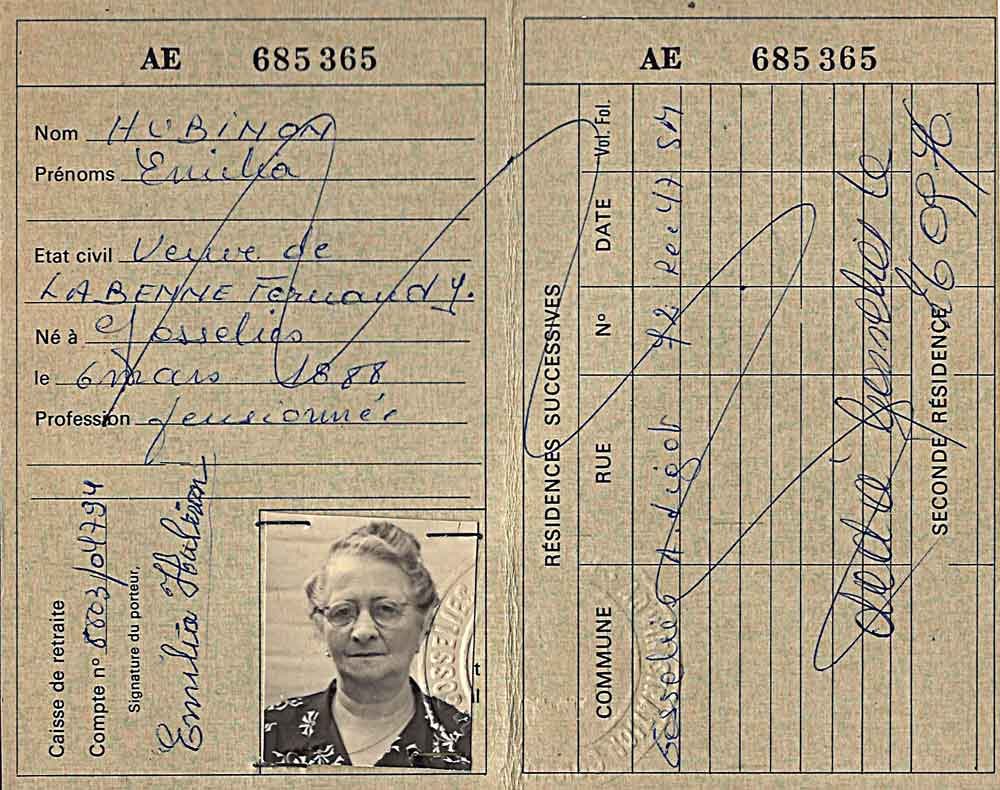 AE 685365
Nom HUBINON
Prénoms Emilia
Etat civil Veuve de
LABENNE Fernand J.
Né à Gosselies
le 6 mars 1888
Profession pensionnée
Caisse de retraite
Compte n°
Signature du porteur,
Emilia Hubinon
GOSSELIES
AE 685365
RÉSIDENCES SUCCESSIVES
COMMUNE RUE N° DATE Vol. Fol.
Gosselies
SECONDE RÉSIDENCE
Gosselies le